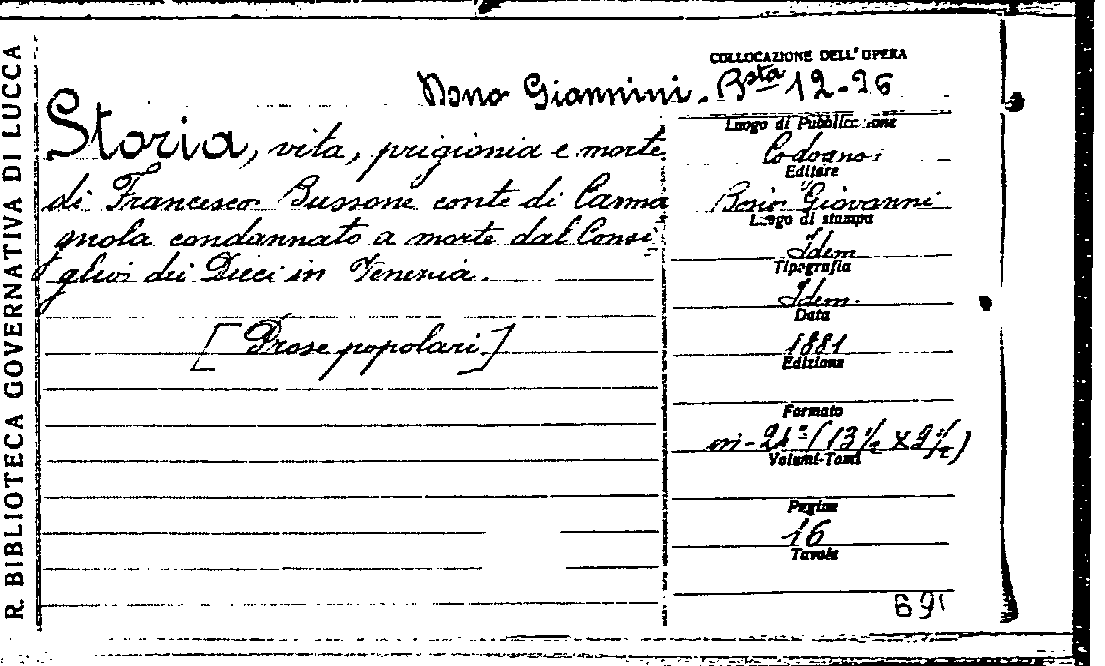 R. BIBLIOTECA GOVERNATIVA DI LUCCA
COLLOCAZIONE DELL'OPERA
Dono Giannini. Bsta 12-26
Storia, vita, prigionia e morte
di Francesco Bussone conte di Carma
gnola condannato a morte dal Consi=
glio dei Dieci in Venezia.
[Prose popolari]
Luogo di Pubblicazione
Codogno
Editore
Bonio Giovanni
Luogo di stampa
Idem
Tipografia
Idem.
Data
1881
Edizione
Formato
in-24° (13 1/2 X 9 1/2)
Volumi-Tomi
Pagine
16
Tavole
691